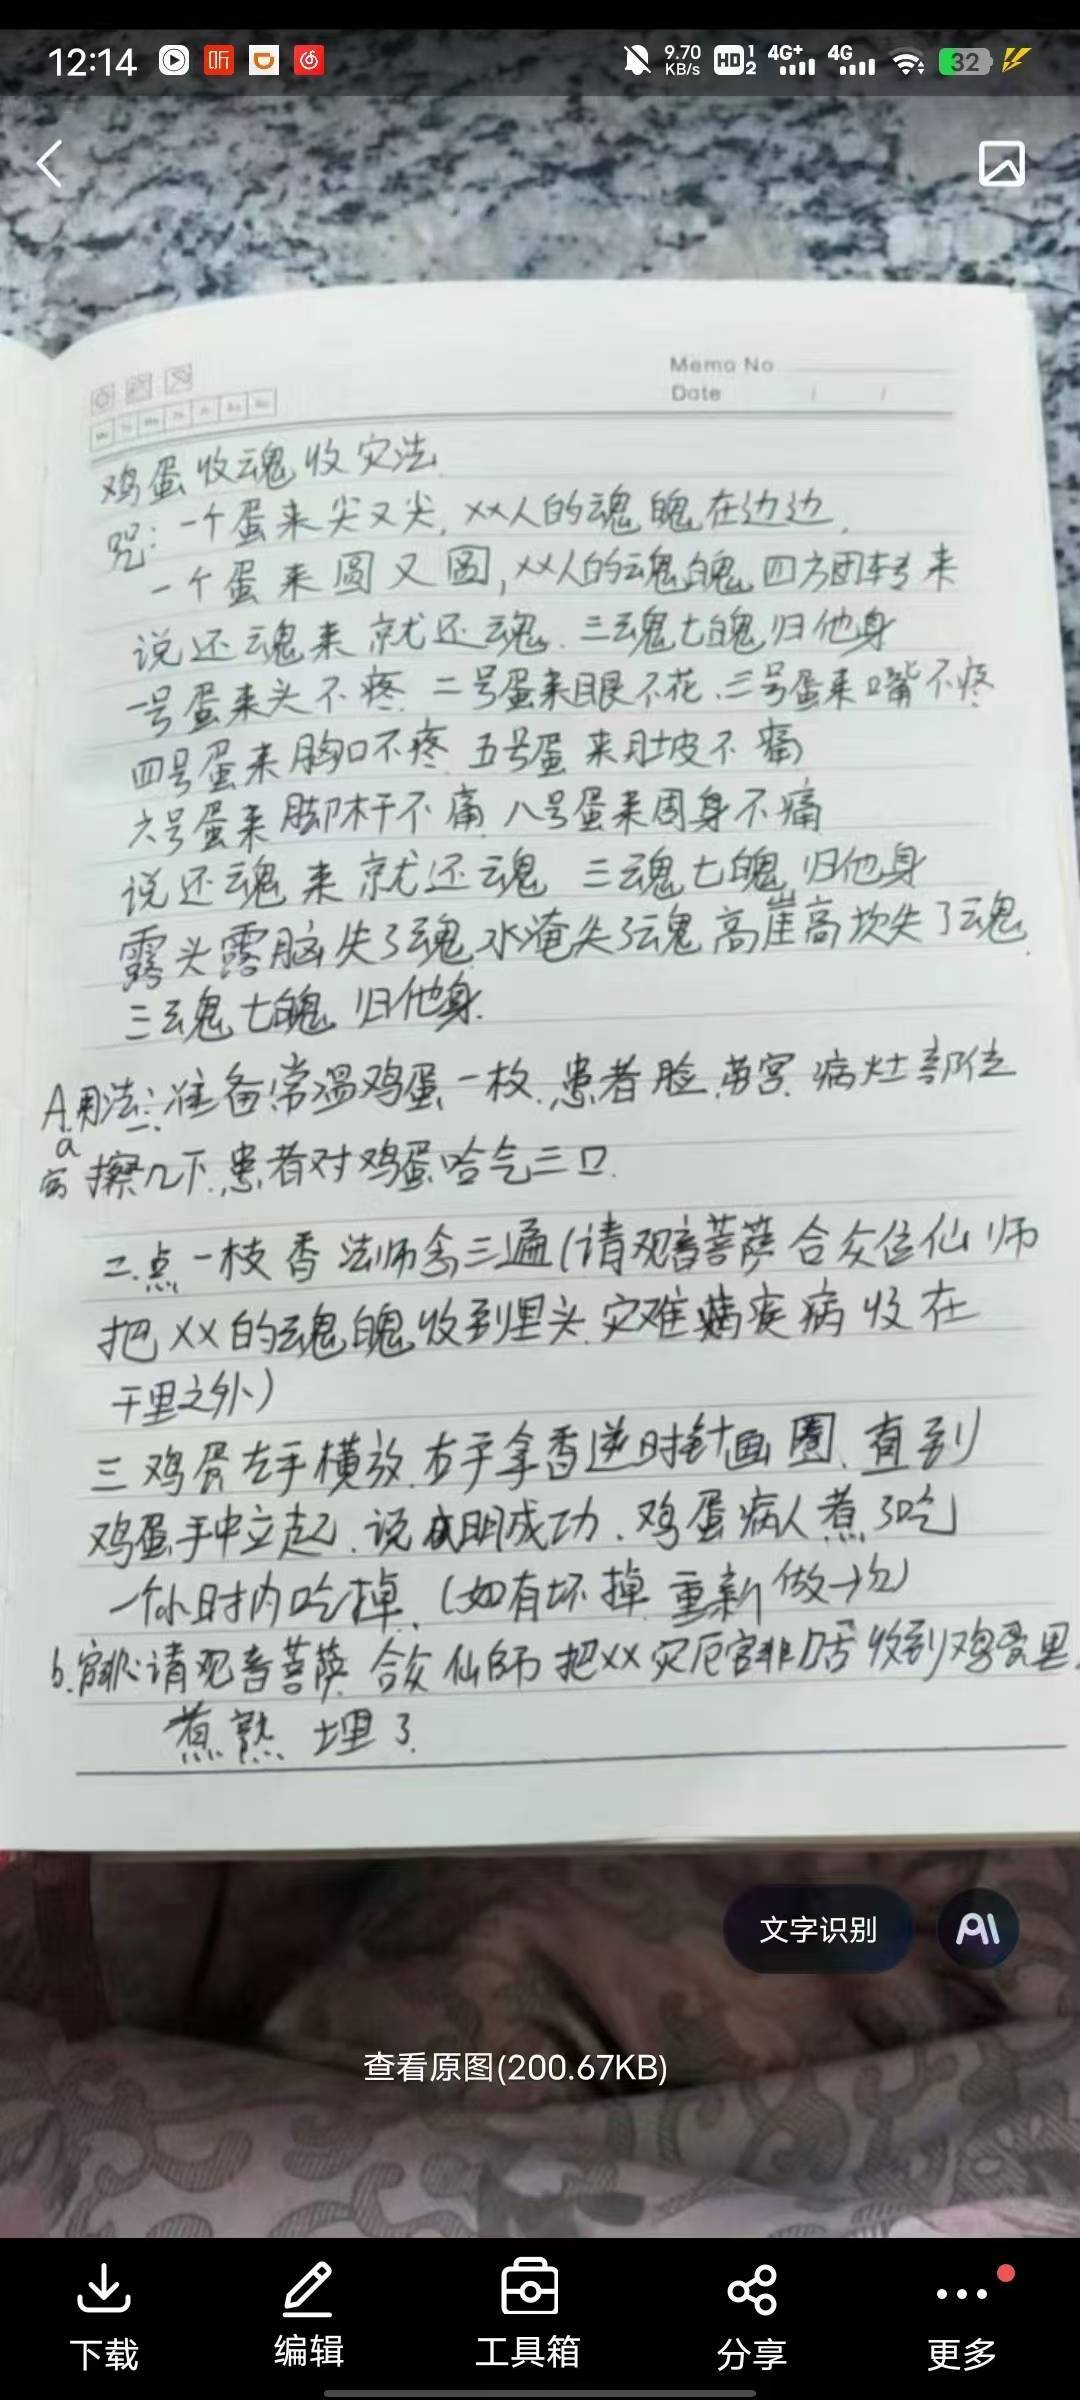 12:14
听
9.70 KB/s
HD 1 2
4G+
4G
32
Memo No
Date / /
鸡蛋收魂收灾法
咒:一个蛋来尖又尖,XX人的魂魄在边边,
一个蛋来圆又圆,XX人的魂魄四方团转来
说还魂来就还魂.三魂七魄归他身
一号蛋来头不疼.二号蛋来眼不花.三号蛋来嘴不疼
四号蛋来胸口不疼 五号蛋来肚皮不痛
六号蛋来脚杆不痛 八号蛋来周身不痛
说还魂来就还魂 三魂七魄归他身
露头露脑失了魂 水淹失了魂 高崖高坎失了魂.
三魂七魄归他身.
A.用法:一.准备常温鸡蛋一枚.患者脸.劳宫.病灶部位
a
病 擦几下.患者对鸡蛋哈气三口.
二.点一枝香 法师念三遍(请观音菩萨合众位仙师
把XX的魂魄收到里头.灾难 疾病收在
千里之外)
三 鸡蛋左手横放.右手拿香逆时针画圈.直到
鸡蛋手中立起.说明成功.鸡蛋病人煮了吃
一个小时内吃掉.(如有坏掉 重新做一次)
b.官非 请观音菩萨 合众仙师 把XX灾厄官非口舌收到鸡蛋里.
煮熟 埋了.
文字识别
AI
查看原图(200.67KB)
下载
编辑
工具箱
分享
更多